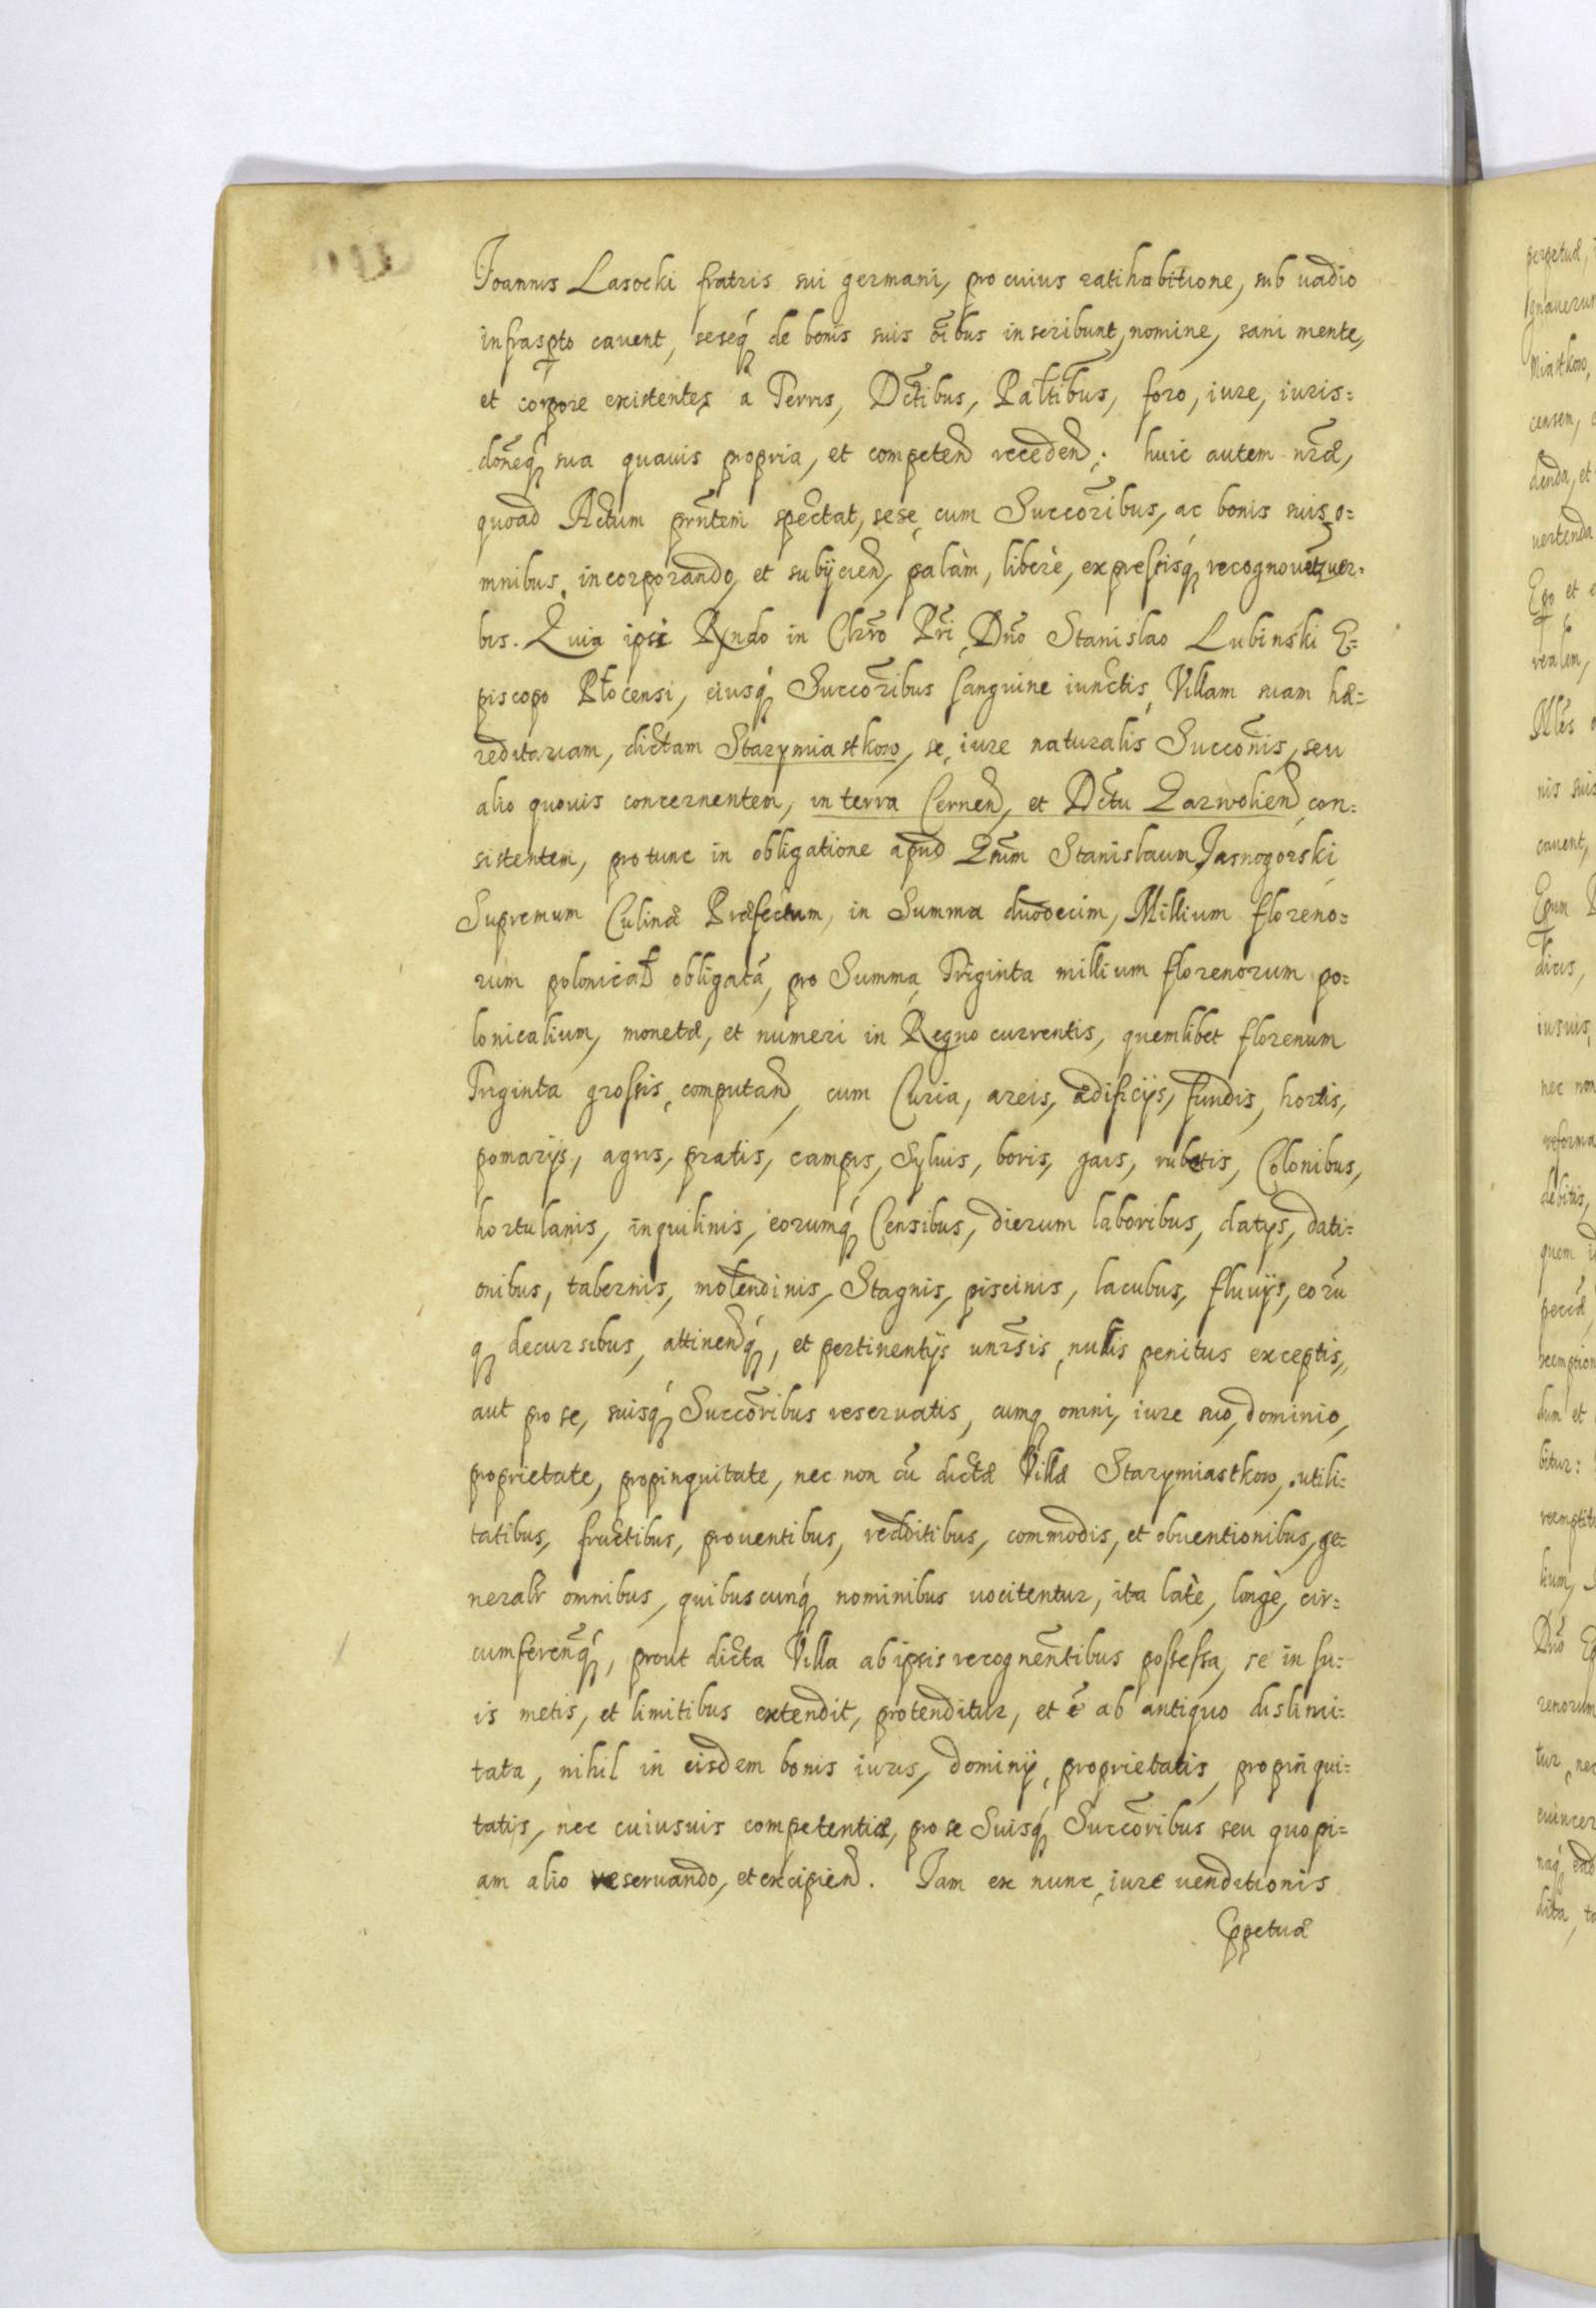 Joannis Lasocki fratris sui germani, pro cuius ratihabitione, sub uadio
infraspto cauent, seseq de bonis suis oibus inscribunt, nomine, sani mente,
et corpore existentes à Terris, Dctibus, Paltibus, foro, iure, iuris=
doneq sua quauis propria, et competen recedend: huic autem nrae,
quoad Actum prntem spectat, sese cum Succoribus, ac bonis suis o=
mnibus incorporando, et subijciend, palàm, liberè, expressisq recognouerut uer=
bis. Quia ipsi Rndo in Chro Pri, Dno Stanislao Lubinski E=
piscopo Plocensi, eiusq Succoribus sanguine iunctis, Villam suam hae=
reditariam, dictam Starymiastkow, se iure naturalis Succonis, seu
alio quouis concernentem, in terra Cernen, et Dctu Garwolien con=
sistentem, pro tunc in obligatione apud Gnum Stanislaum Jasnogorski
Supremum Culinae Praefectum, in Summa duodecim, Millium floreno=
rum polonical obligata, pro Summa Triginta millium florenorum po=
lonicalium, monetae, et numeri in Regno currentis, quemlibet florenum
Triginta grossis computand, cum Curia, areis, aedificijs, fundis, hortis,
pomarijs, agris, pratis, campis, Syluis, boris, gais, rubetis, Colonibus,
hortulanis, inquilinis, eorumq Censibus, dierum laboribus, datijs, dati=
onibus, tabernis, molendinis, Stagnis, piscinis, lacubus, fluuijs, eoru
q decursibus, attinenq, et pertinentijs unrsis, nullis penitus exceptis,
aut pro se, suisq Succoribus reseruatis, cumq omni, iure suo, dominio,
proprietate, propinquitate, nec non cu dictae Villae Starymiastkow, utili=
tatibus, fructibus, prouentibus, redditibus, commodis, et obuentionibus, ge=
neralr omnibus, quibuscunq nominibus uocitentur, ita latè, longè, cir=
cumferenq, prout dicta Villa ab ipsis recognentibus possessa, se in su=
is metis, et limitibus extendit, protenditur, et e ab antiquo dislimi=
tata, nihil in eisdem bonis iuris, dominij, proprietatis, propinqui=
tatis, nec cuiusuis competentiae, pro se Suisq Succoribus seu quopi=
am alio reseruando, et excipiend. Jam ex nunc iure uenditionis
ppetuae